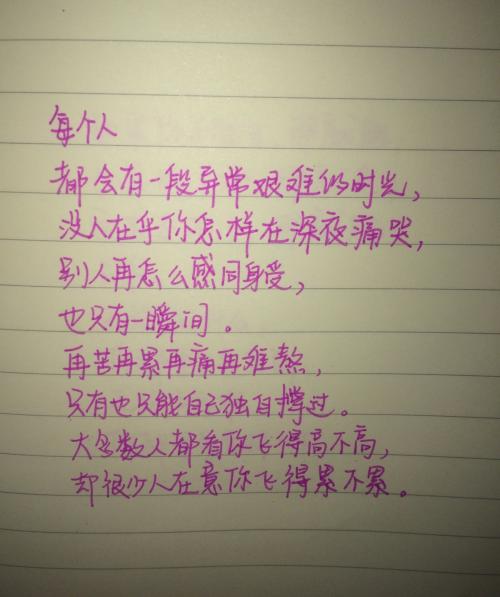 每个人
都会有一段异常艰难的时光，
没人在乎你怎样在深夜痛哭，
别人再怎么感同身受，
也只有一瞬间。
再苦再累再痛再难熬，
只有也只能自己独自撑过。
大多数人都看你飞得高不高，
却很少人在意你飞得累不累。